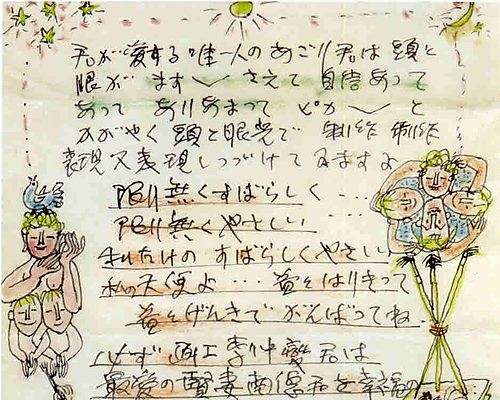 君が愛する唯一人のあごり君は頭と
眼がます〱さえて自信あって
あってありあまってピカ〱と
かがやく頭と眼光で 制作 制作
表現又表現しつづけてゐますよ
限り無くすばらしく…
限り無くやさしい…
私だけのすばらしくやさしい
私の天使よ…益々はりきって
益々げんきでがんばってね
必ず画工李仲燮君は
最愛の賢妻南徳君を幸福の